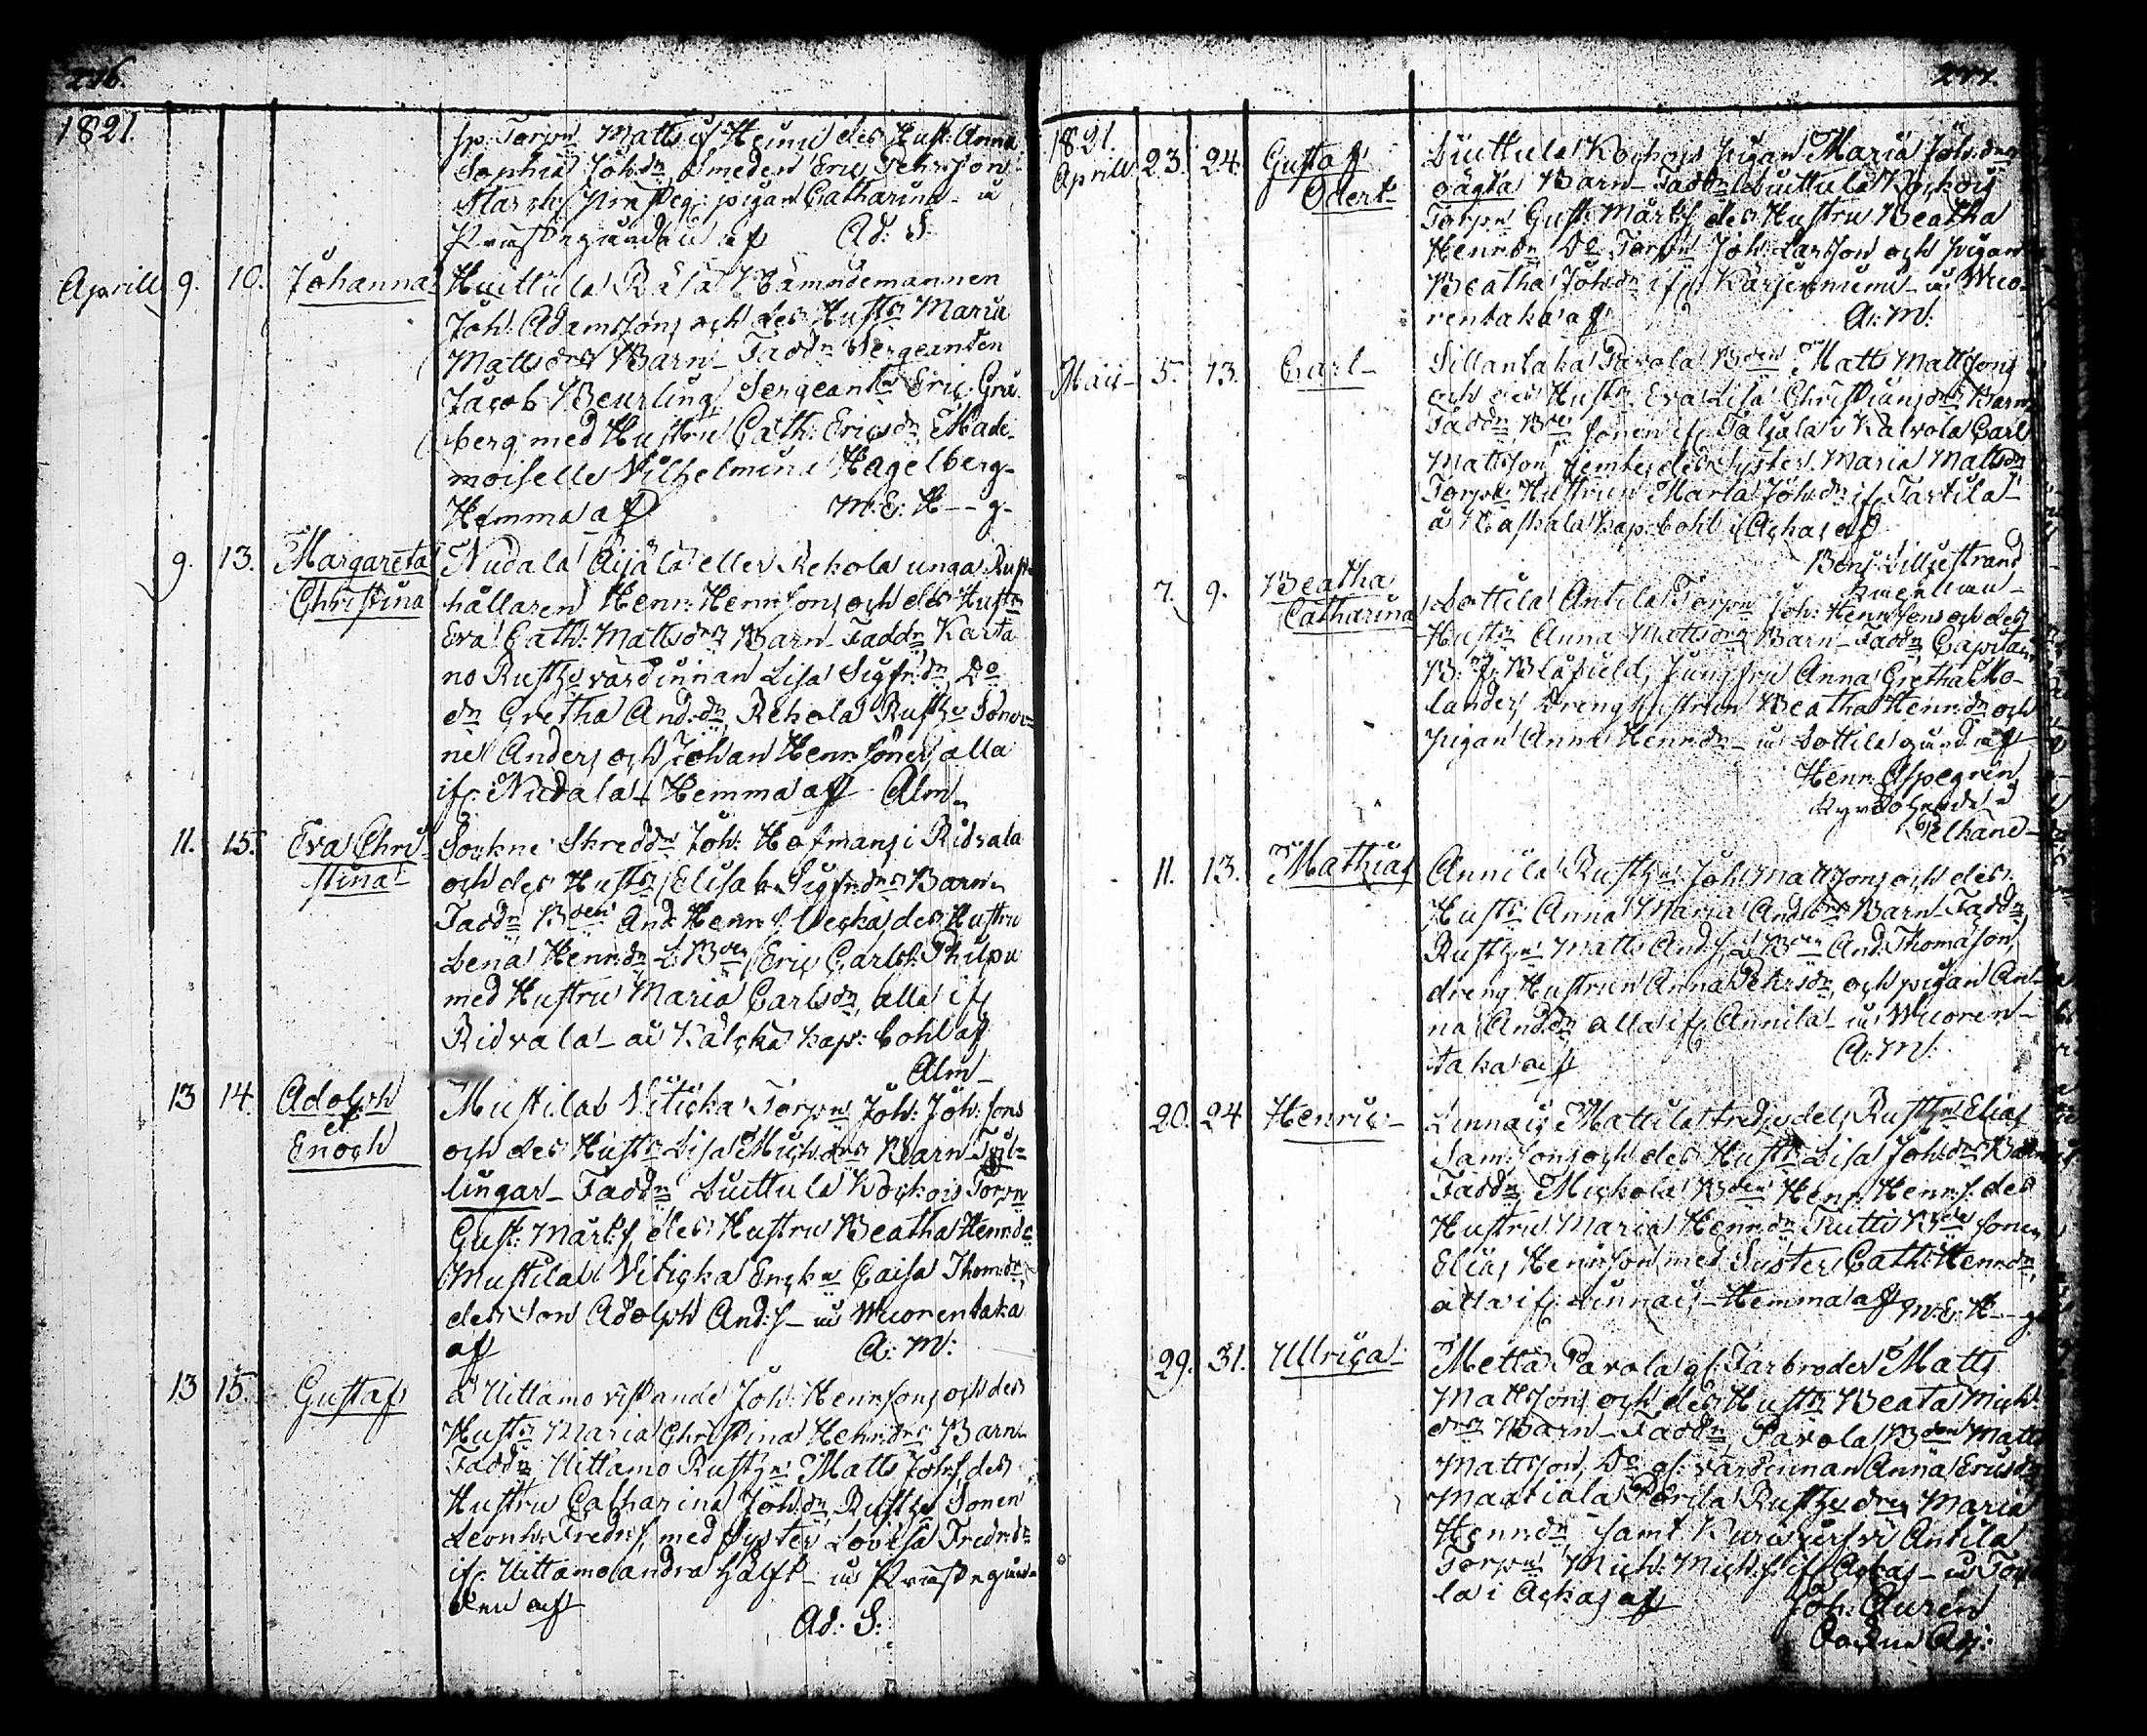 276.
1821.
sp. Torpn Matts ifr Heinu des Hust. Anna
Sophia Joh:dn, Smeden Eric Pehrsson
pigan Catharina - u
Prustegunden af Ad: S:
Aprill 9. 10. Johanna Huittula Rälä Nämndemannen
Joh: Adamssons och des Hustr Maria
Mattsdrs Barn - Faddn Sergeanten
Jacob Beurling, Sergeantn Eric Grå-
berg med Hustru Cath: Ericsdn, Made-
moiselle Vilhelmina Hagelberg -
Hemma af M. E. H--g.
9. 13. Margareta Christina Nudala Äijälä eller Rekola unga Rust-
hållaren Henr: Henr:sons och des Hustr
Eva Cath: Mattsdrs Barn - Faddn Karta
no Rusth: värdinnan Lisa Sigfr:dn, Do
dn Gretha And:dn, Rekola Rusth: Söner-
ne Anders och Johan Henr:söner, alla
ifr Nudala - Hemma af Alm.
11. 15. Eva Chri-stina Sockne Skreddn Joh: Hofmans i Ridvala
och des Hustr Elisab. Sigfr:drs Barn -
Faddn Bden And: Henr:s. des Hustru
Lena Henr:dn, Eric Carls: Philpu
med Hustru Maria Carlsdn, alla ifr
Ridvala - Kap: Bohl af
Alm -
13 14. Adolph et Enoch Mustila Viticka Torpn Joh: Joh:sons
och des Hustr Lisa Mich:drs Barn Tvil-
lingar - Faddn Luttula Kockois Torpn
Gust: Märt:s. des Hustru Beatha Henr:dr
Mustila Viticka Enkn Caisa Thom:dr,
des Son Adolph And:s - u Wuorentaka
af A: M:
13 15. Gustaf å Uittamo vistande Joh: Henr:sons och des
Hustr Maria Christina Henr:drs Barn -
Faddn Uittamo Rusthn Matts Joh:s des
Hustru Catharina Joh:dn, Rusth: Sonen
Leonh: Fredr:s, med Syster Lovisa Fredr:dr
ifr Uittamo andra hälft - u Prustegun-
den af
Ad: S:
277.
1821.
Aprill 23. 24. Gustaf Odert Luttula Kockois pigan Maria Joh:drs
oägta Barn - Faddn Luttula Kockois
Torpn Gust: Märt:s, des Hustru Beatha
Henr:dn, Do Torpn Joh: Larsson och pigan
Beatha Joh:dn ifr Karjenniemi - u Wuo-
rentaka af A: M:
Maii 5. 13. Carl Sillantaka Parola Bden Matts Mattssons
och des Hustr Eva Lisa Christiansdrs Barn
Faddn Bde sonen ifr Taljala i Kalvola Carl
Mattsson jemte des Syster Maria Mattsdn
Torpar Hustrun Maria Joh:dn ifr Tastila -
Kap: Bohl i Ackas af
Benj: Lilljestrand
7. 9. Beatha Catharina Lottila Antila Torpn Joh: Henr:sons och des
Hustr Anna Mattsdrs Barn - Faddn Capitain
B: J. Blåfield, Jungfru Anna Gretha Mo-
lander, Dreng hustrun Beatha Henr:dn och
pigan Anna Henr:dn - u Lottila gård af
Henr: Aspegren
Kyrkoherde i
11. 13. Mathias Annila Rusthn Joh: Mattssons och des
Hustr Anna Maria And:drs Barn - Faddn
Rusthn Matts And:s, Bden And: Thomasson,
dreng Hustrun Anna Pehrsdn, och pigan An-
na And:dn alla ifr Annila - u Wuoren-
taka af A: M:
20. 24. Henric Linnais Mattila tredjedels Rusthn Elias
Sam:sons och des Hustr Lisa Joh:drs Barn
Faddn Mickola Bden Henr: Henr:s. des
Hustru Maria Henr:dn, Tutti Bde sonen
Elias Henr:son, med Syster Cath: Henr:dn
alla ifr Linnais - Hemma af M: E: H--g.
29. 31. Ullrica Metta Parola gl: Farbroder Matts
Mattssons och des Hustr Beata Mich:
drs Barn - Faddn Parola Bden Matts
Mattsson, Do gl: värdinnan Anna Ericsdn
Mattiala Perila Rusth: drn Maria
Henr:dn samt Kurisjärvi Antila
Torpn Mich: Mich:s ifr Ackas - u
la i Ackas af Joh: Aurén
Adj: